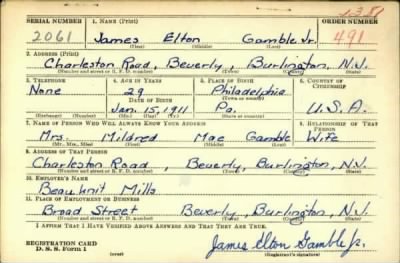 SERIAL NUMBER 1. NAME (Print) ORDER NUMBER
2061 James Elton Gamble Jr. 491
(First) (Middle) (Last)
2. ADDRESS (Print)
Charleston Road, Beverly, Burlington, N.J.
(Number and street or R. F. D. number) (Town) (County) (State)
3. TELEPHONE 4. AGE IN YEARS 5. PLACE OF BIRTH 6. COUNTRY OF CITIZENSHIP
None 29 Philadelphia
DATE OF BIRTH (Town or county)
Jan. 15, 1911 Pa. U.S.A.
(Exchange) (Number) (Mo.) (Day) (Yr.) (State or country)
7. NAME OF PERSON WHO WILL ALWAYS KNOW YOUR ADDRESS 8. RELATIONSHIP OF THAT PERSON
Mrs. Mildred Mae Gamble Wife
(Mr., Mrs., Miss) (First) (Middle) (Last)
9. ADDRESS OF THAT PERSON
Charleston Road, Beverly, Burlington, N.J.
(Number and street or R. F. D. number) (Town) (County) (State)
10. EMPLOYER'S NAME
Beaunit Mills
11. PLACE OF EMPLOYMENT OR BUSINESS
Broad Street Beverly, Burlington, N.J.
(Number and street or R. F. D. number) (Town) (County) (State)
I AFFIRM THAT I HAVE VERIFIED ABOVE ANSWERS AND THAT THEY ARE TRUE.
REGISTRATION CARD
D. S. S. Form 1 (over) James Elton Gamble Jr.
(Registrant's signature)